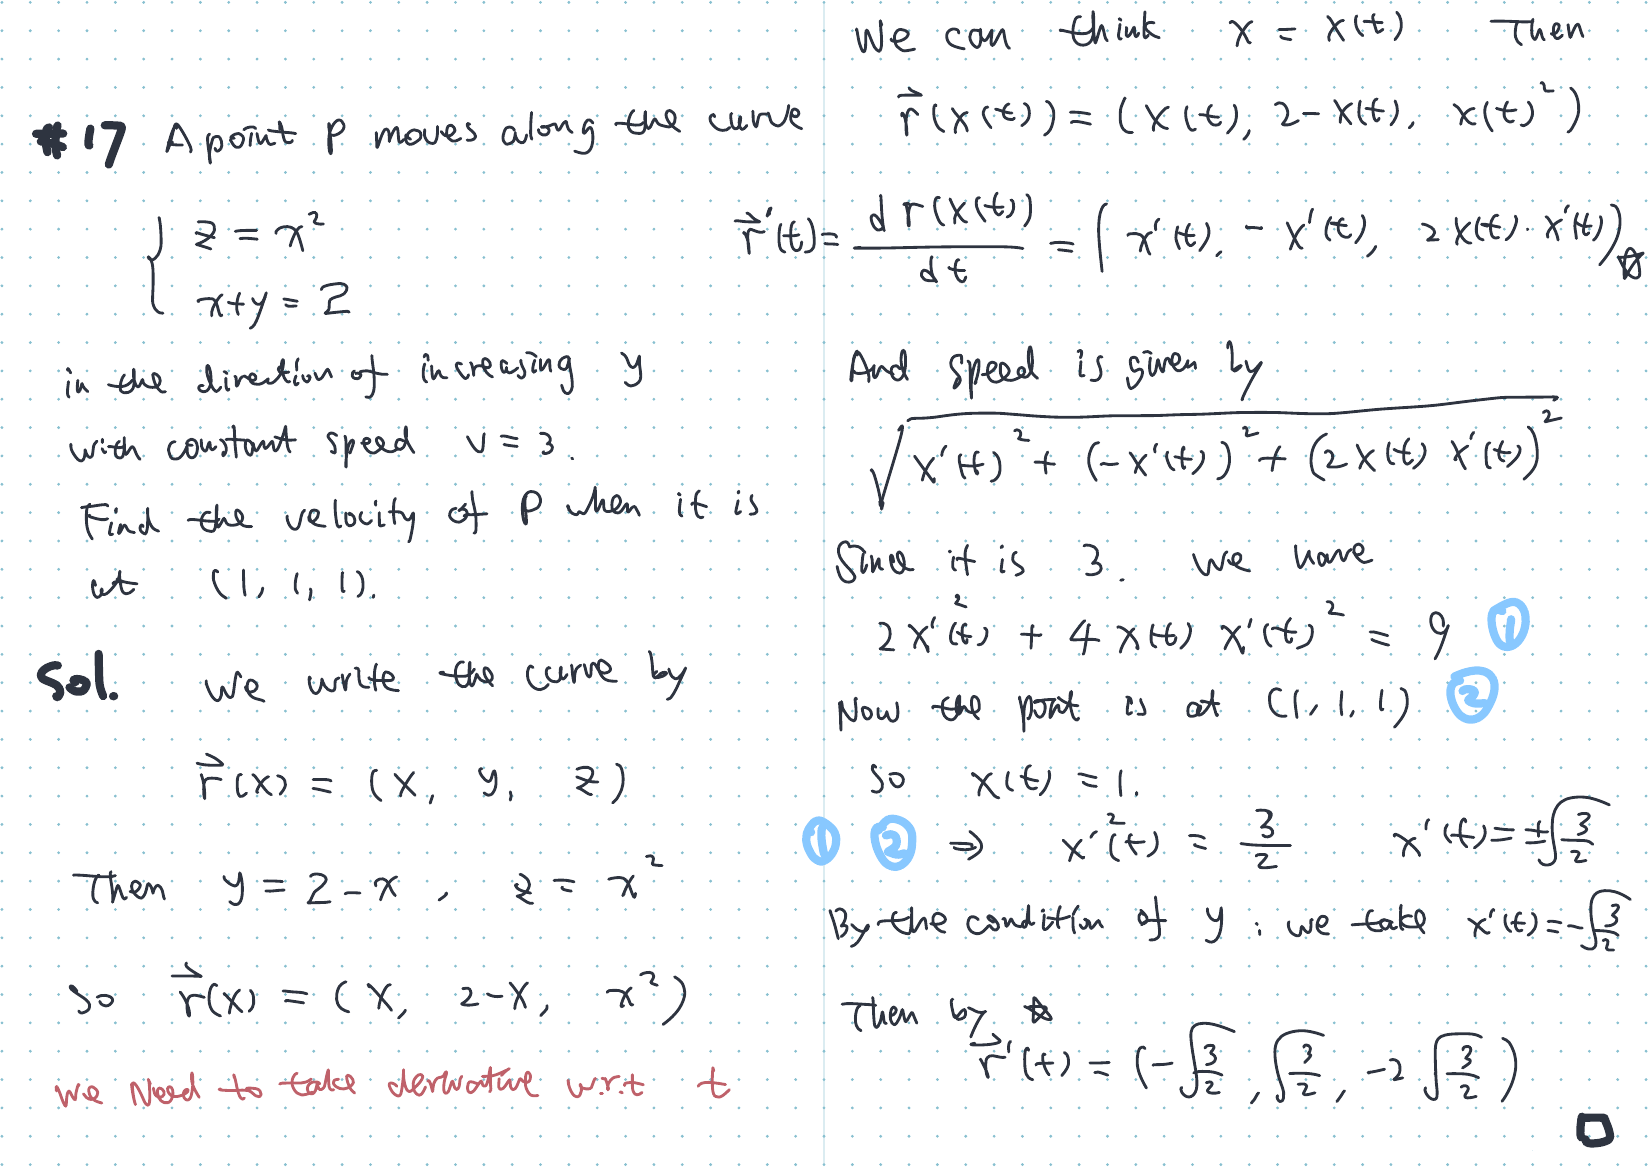 #17 A point P moves along the curve
{ z = x²
x+y = 2
in the direction of increasing y
with constant speed v = 3.
Find the velocity of P when it is
at (1, 1, 1).
Sol. We write the curve by
r⃗(x) = (x, y, z)
Then y = 2-x, z = x²
So r⃗(x) = (x, 2-x, x²)
We Need to take derivative w.r.t t
We can think x = x(t) Then
r⃗(x(t)) = (x(t), 2-x(t), x(t)²)
r⃗'(t) = d r(x(t)) / dt = (x'(t), -x'(t), 2x(t)·x'(t)) ☆
And speed is given by
√(x'(t)² + (-x'(t))² + (2x(t) x'(t))²)
Since it is 3. we have
2x'(t)² + 4x(t) x'(t)² = 9 ①
Now the point is at (1, 1, 1) ②
So x(t) = 1.
① ② ⇒ x'²(t) = 3/2 x'(t) = ±√(3/2)
By the condition of y : we take x'(t) = -√(3/2)
Then by ☆
r⃗'(t) = (-√(3/2), √(3/2), -2√(3/2))